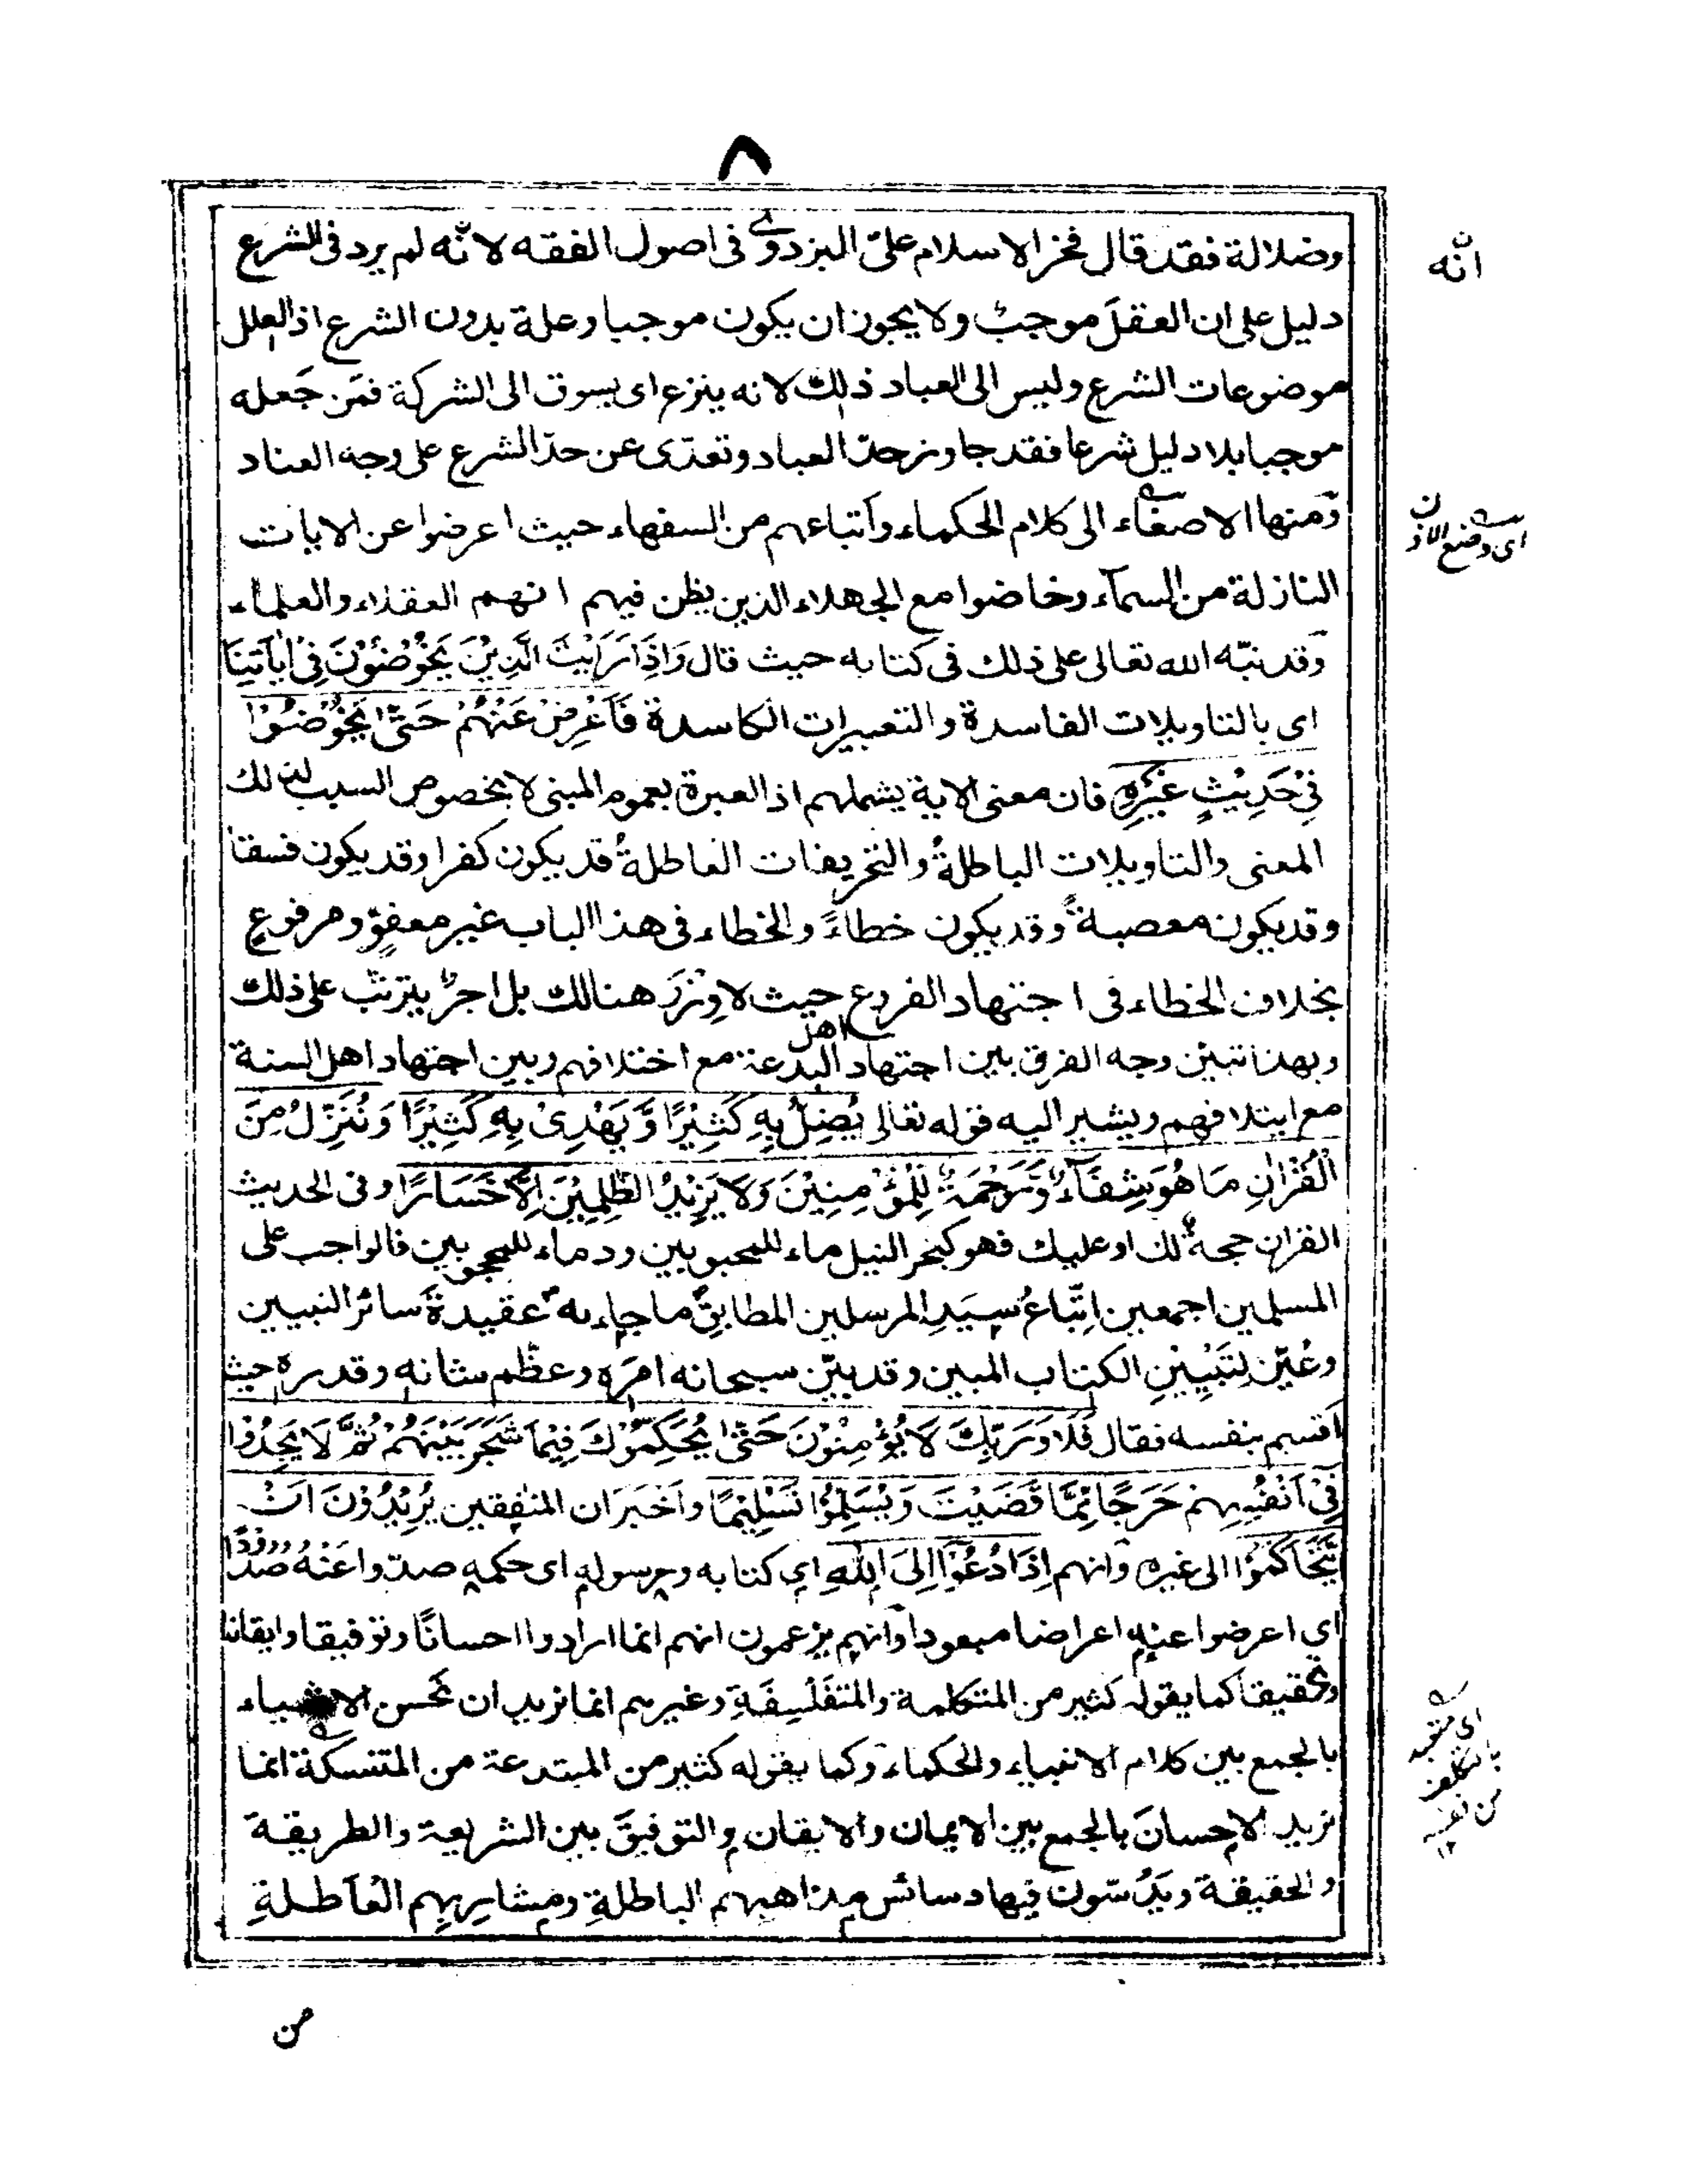 ٨
وضلالة فقد قال فخر الاسلام علىّ البزدوى فى اصول الفقه لانّه لم يرد فى الشرع
انّه
دليل على ان العقلَ موجبٌ ولا يجوز ان يكون موجبا وعلة بدون الشرع اذ العلل
موضوعات الشرع وليس الى العباد ذلك لانه ينزع اى يسوق الى الشركة فمَن جَعله
موجبا بلا دليل شرعا فقد جاوز حدّ العباد وتعدّى عن حدّ الشرع على وجه العناد
ومنها الاصغاء الى كلام الحكماء وأتباعهم من السفهاء حيث اعرضوا عن الايات
اى وضع الاذن
النازلة من السمآء وخاضوا مع الجهلاء الذين يظن فيهم انهم العقلاء والعلماء
وقد نبّه الله تعالى على ذلك فى كتابه حيث قال وَاِذَا رَاَيْتَ الَّذِيْنَ يَخُوْضُوْنَ فِىْ اٰيَاتِنَا
اى بالتاويلات الفاسدة والتعبيرات الكاسدة فَاَعْرِضْ عَنْهُمْ حَتّٰى يَخُوْضُوْا
فِىْ حَدِيْثٍ غَيْرِهٖ فان معنى الاية يشملهم اذ العبرة بعموم المبنى لا بخصوص السبب لذلك
المعنى والتاويلات الباطلةُ والتحريفات العاطلةُ قد يكون كفرا وقد يكون فسقا
وقد يكون معصيةً وقد يكون خطاءً والخطاء فى هذا الباب غير معفوٍّ ومرفوع
بخلاف الخطاء فى اجتهاد الفروع حيث لا وِزْرَ هنالك بل اجرٌ يترتّب على ذلك
وبهذا تبيّن وجه الفرق بين اجتهاد اهل البدعة مع اختلافهم وبين اجتهاد اهل السنة
مع ايتلافهم ويشير اليه قوله تعالى يُضِلُّ بِهٖ كَثِيْرًا وَّيَهْدِىْ بِهٖ كَثِيْرًا وَنُنَزِّلُ مِنَ
الْقُرْاٰنِ مَا هُوَ شِفَآءٌ وَّرَحْمَةٌ لِّلْمُؤْمِنِيْنَ وَلَا يَزِيْدُ الظّٰلِمِيْنَ اِلَّا خَسَارًا وفى الحديث
القران حجةٌ لك او عليك فهو كبحر النيل ماء للمحبوبين ودماء للمحجوبين فالواجب على
المسلمين اجمعين اِتّباعُ سيّدِ المرسلين المطابقِ ما جاء به عقيدةَ سائر النبيين
وعُيّن لِتَبْيِيْنِ الكتاب المبين وقد بيّن سبحانه امرَه وعظّم شانه وقدره حيث
اقسم بنفسه فقال فَلَا وَرَبِّكَ لَا يُؤْمِنُوْنَ حَتّٰى يُحَكِّمُوْكَ فِيْمَا شَجَرَ بَيْنَهُمْ ثُمَّ لَا يَجِدُوْا
فِىْ اَنْفُسِهِمْ حَرَجًا مِّمَّا قَضَيْتَ وَيُسَلِّمُوْا تَسْلِيْمًا وأخبر ان المنٰفقين يُرِيْدُوْنَ اَنْ
يَّتَحَاكَمُوْا الى غيره وانهم اِذَا دُعُوْآ اِلَى اللّٰهِ اى كتابه ورسوله اى حكمه صدّوا عَنْهُ صُدُوْدًا
اى اعرضوا عنه اعراضا مبعودا وانهم يزعمون انهم انما ارادوا احسانًا وتوفيقا وايقانا
وتحقيقا كما يقوله كثير من المتكلمة والمتفَلْسِفَةِ وغيرهم انما نريد ان نحسن الاشياء
بالجمع بين كلام الانبياء والحكماء وكما يقوله كثير من المبتدعة من المتنسكة انما
نريد الاحسانَ بالجمع بين الايمان والايقان والتوفيقَ بين الشريعة والطريقة
والحقيقة ويَدُسّون فيها دسائس مذاهبهم الباطلةِ ومشاربهم العَاطلةِ
من